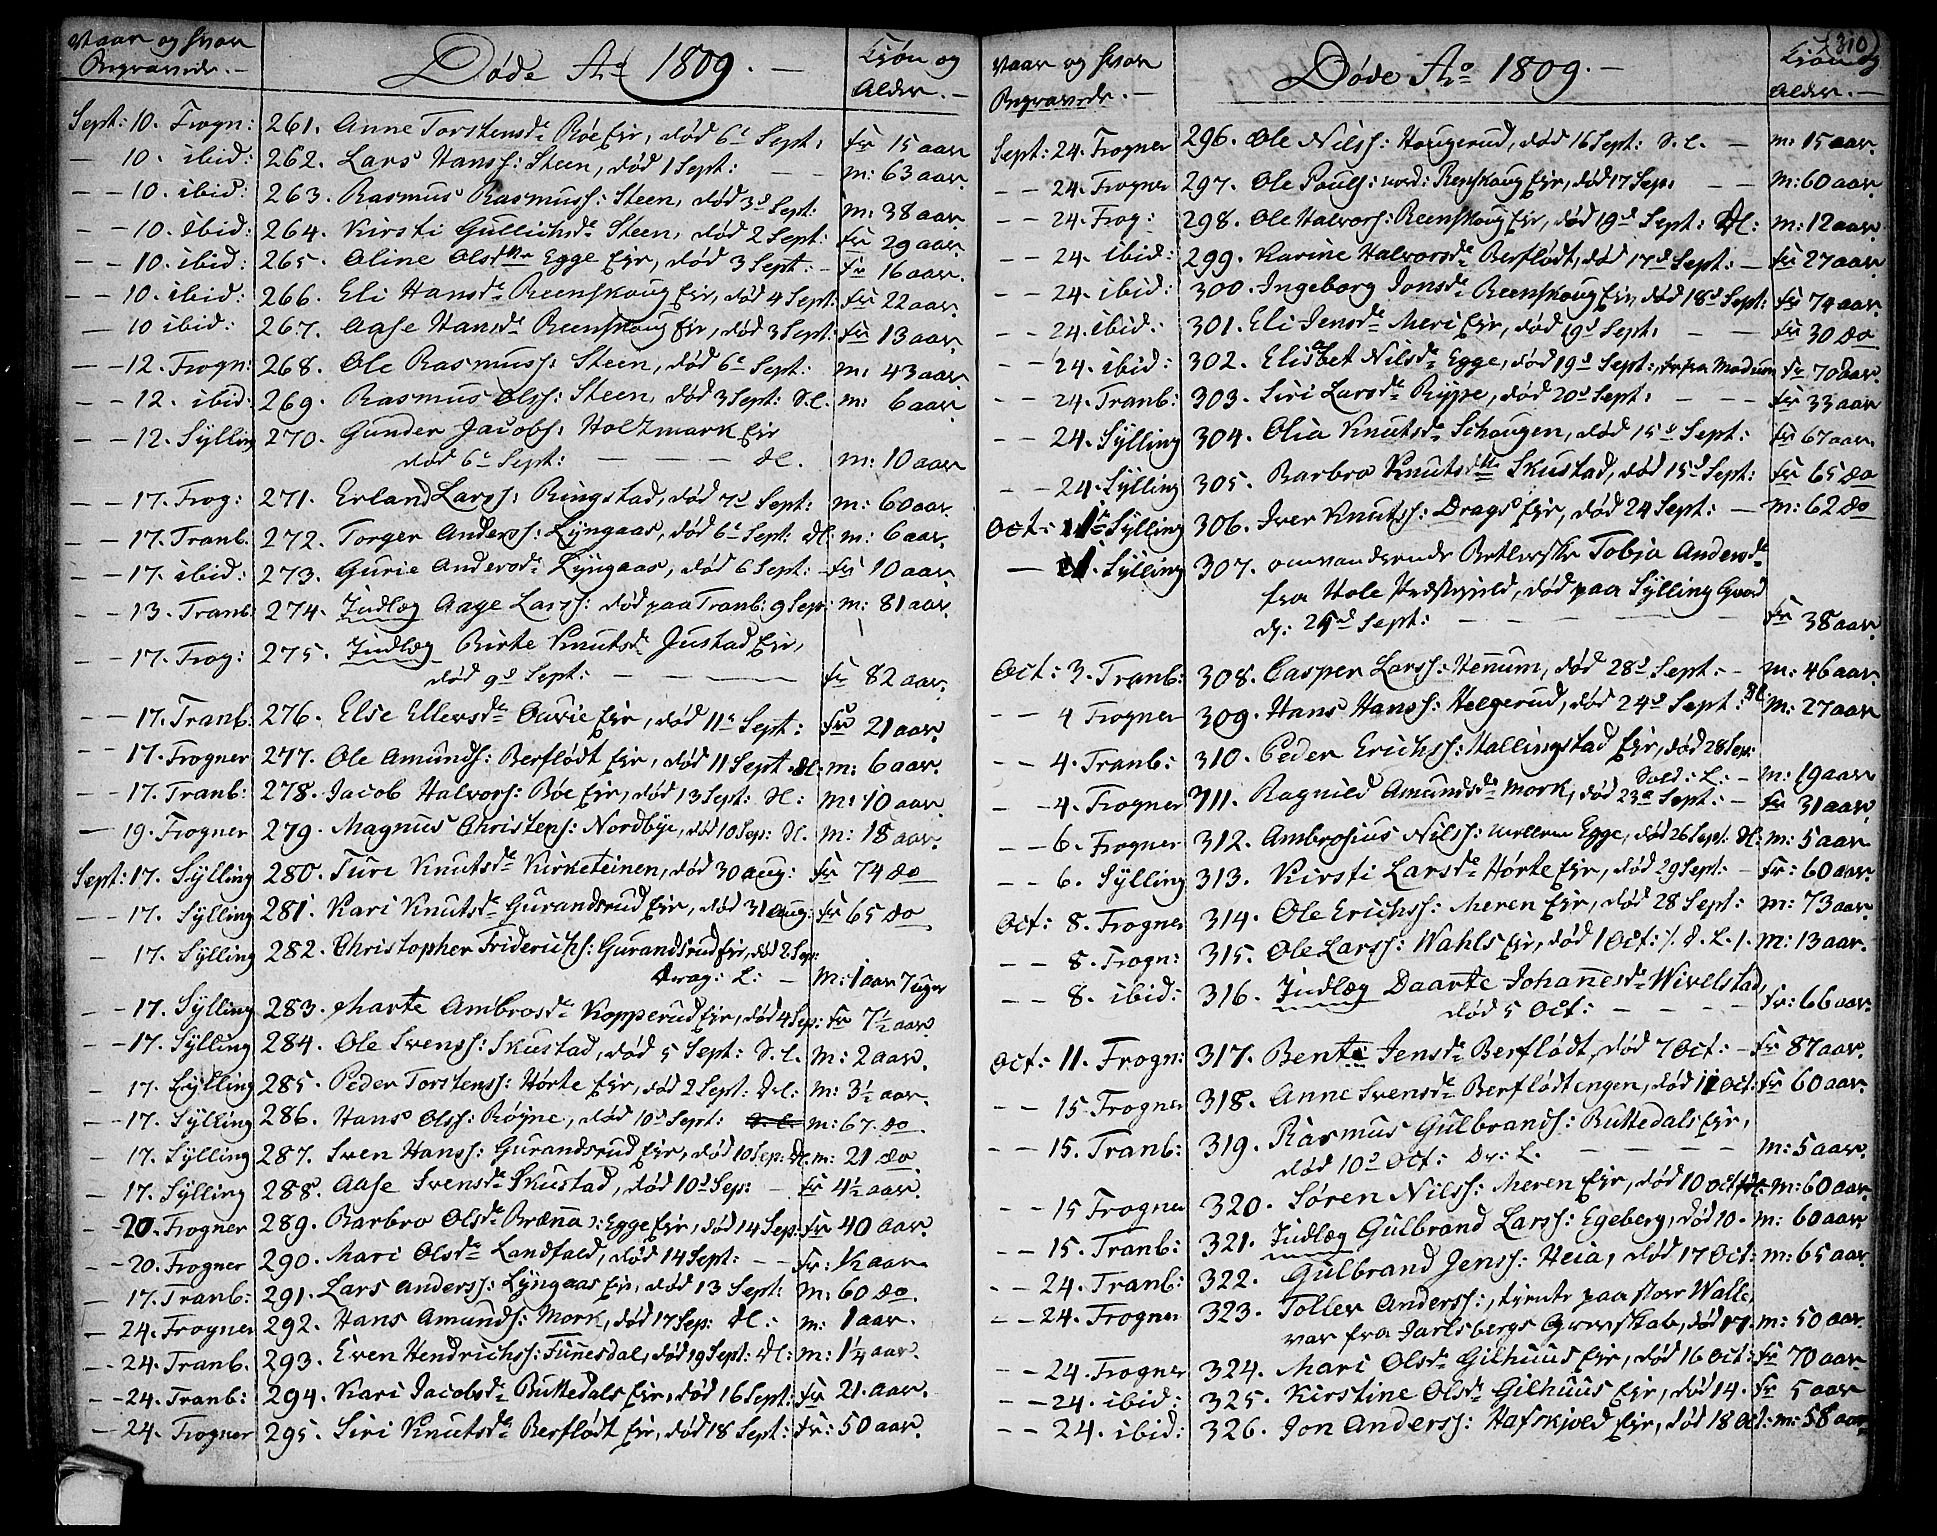 Naar og hvor
Begravede. –
Døde Ao 1809. –
Kjøn og
Alder. –
Sept: 10. Frogn: 261. Anne Torstensdr Røe Eir, død 6te Sept: Fr 15 aar
– 10. ibid: 262. Lars Hanss: Steen, død 1 Sept: – – m: 63 aar.
– – 10. ibid: 263. Rasmus Rasmuss: Steen, død 3d Sept: m: 38 aar.
– – 10. ibid: 264. Kirsti Gullichsdr Steen, død 2 Sept: Fr 29 aar.
– – 10. ibid: 265. Aline Olsdtr Egge Eir, død 3 Sept: – Fr 16 aar.
– – 10. ibid: 266. Eli Hansdr Reenskoug Eir, død 4 Sept: Fr 22 aar.
– – 10 ibid: 267. Aase Hansdr Reenskoug Eir, død 3 Sept: Fr 13 aar.
– – 12. Frogn: 268. Ole Rasmuss: Steen, død 6te Sept: m: 43 aar.
– – 12. ibid: 269. Rasmus Olss: Steen, død 3 Sept: d.l. m: 6 aar.
– – 12. Sylling 270. Gunder Jacobs: Holtzmark Eir
død 6te Sept: – – – dl. m: 10 aar
– – 17. Frog: 271. Erland Larss: Ringstad, død 7d Sept: m: 60 aar.
– – 17. Tranb: 272. Torger Anderss: Lyngaas, død 6te Sept: dl: m: 6 aar.
– – 17. ibid: 273. Gurie Andersdr Lyngaas, død 6 Sept: – Fr 10 aar.
– – 13. Tranb: 274. Indlæg Aage Larss: død paa Tranb: 9 Sept: m: 81 aar.
– – 17. Frog: 275. Indlæg Birte Knutsdr Justad Eir,
død 9d Sept: – – – Fr 82 aar.
– – 17. Tranb: 276. Else Ellersdr Ourie Eir, død 11te Sept: Fr 21 aar.
– – 17. Frogner 277. Ole Amunds: Berflødt Eir, død 11 Sept. dl: m: 6 aar.
– – 17. Tranb: 278. Jacob Halvors: Bøe Eir, død 13 Sept: dl: m: 10 aar.
– 19. Frogner 279. Magnus Christens: Nordbye, død 10 Sep: dl. m: 18 aar.
Sept: 17. Sylling 280. Turi Knutsdr Kirketeinen, død 30 aug: Fr 74 do
– – 17. Sylling 281. Kari Knutsdr Gurandsrud Eir, død 31 aug: Fr 65 do
– 17. Sylling 282. Christopher Friderichs: Gurandsrud Eir, død 2 Sep:
drag: l: – m: 1 aar 7 uger
– – 17. Sylling 283. Marte Ambrosdr Kopperud Eir, død 4 Sep: Fr 7½ aar.
– – 17. Sylling 284. Ole Svenss: Skustad, død 5 Sept: d.l. m: 2 aar.
– 17. Sylling 285. Peder Torstenss: Hørte Eir, død 2 Sept: dl: m: 3½ aar.
– – 17. Sylling 286. Hans Olss: Røyne, død 10d Sept: d.l. m: 67. do.
– 17. Sylling 287. Sven Hanss: Gurandsrud Eir, død 10 Sep: dl. m: 21 do.
– 17. Sylling 288. Aase Svensdr Skustad, død 10d Sep: – Fr 4½ aar.
– – 20. Frogner 289. Barbro Olsdr Brænna ): Egge Eir, død 14 Sep: Fr 40 aar.
– – 20. Frogner 290. Mari Olsdr Landfald, død 14 Sept: – – Fr: ½ aar.
– 17. Tranb: 291. Lars Anderss: Lyngaas Eir, død 13 Sept: m: 60 do.
– 24. Frogner 292. Hans Amunds: Mork, død 17 Sep: dl: m: 1 aar.
– – 24. Tranb. 293. Even Hendrichss: Funnesdal, død 19 Sept: dl: m: 1¼ aar.
– – 24. Tranb: 294. Kari Jacobsdr Buttedals Eir, død 16 Sept: Fr 21. aar.
– 24. Frogner 295. Siri Knutsdr Berflødt Eir, død 18 Sept: Fr: 50 aar.
310
Naar og hvor
Begravede. –
Døde Ao 1809. –
Kjøn og
Alder. –
Sept: 24. Frogner 296. Ole Nilss: Hougerud, død 16 Sept: d.l. – m: 15 aar.
– – 24. Frogner 297. Ole Pouls: nord: Renskoug Eir, død 17 Sep: – – m: 60 aar.
– – 24. Frog: 298. Ole Halvors: Reenskoug Eir, død 19d Sept: dl: m: 12 aar.
– – 24. ibid: 299. Karine Halvorsdr Berflødt, død 17d Sept: – Fr 27 aar.
– – 24. ibid: 300. Ingeborg Jonsdr Reenskoug Eir, død 18d Sept: Fr 74 aar.
– – 24. ibid: 301. Eli Jensdr Meri Eir, død 19d Sept: – – Fr 30 do
– 24. ibid: 302. Elisbet Nilsdr Egge, død 19d Sept:, fra Modum Fr 70 aar.
– – 24. Tranb: 303. Siri Larsdr Rype, død 20d Sept: – – – Fr 33 aar
– – 24. Sylling 304. Olia Knutsdr Schougen, død 15d Sept: Fr 67 aar.
– – 24. Sylling 305. Barbro Knutsdtr Skustad, død 15d Sept: Fr 65 do
Oct: 1te Sylling 306. Iver Knutss: Drags Eir, død 24 Sept: – m: 62 do
– 1. Sylling 307. omvandrende Betlerske Tobia Andersdr
fra Hole Præstegield, død paa Sylling Gaard
d: 25d Sept: – – – – Fr 38 aar.
Oct: 3. Tranb: 308. Casper Larss: Henum, død 28d Sept: – m: 46 aar.
– – 4 Frogner 309. Hans Hanss: Helgerud, død 24d Sept: dl m: 27 aar
– – 4. Tranb: 310. Peder Erichss: Hallingstad Eir, død 28 Sep:
Sold: l: – m: 19 aar
– – 4. Frogner 311. Ragnild Amundsdr Mork, død 23d Sept: – Fr 31 aar.
– – 6. Frogner 312. Ambrosius Nilss: mellem Egge, død 26 Sept: dl: m: 5 aar
– – 6. Sylling 313. Kirsti Larsdr Hørte Eir, død 29 Sept: – Fr: 60 aar.
Oct: 8. Frogner 314. Ole Erichss: Meren Eir, død 28 Sept: m: 73 aar.
– – 8. Frogn: 315. Ole Larss: Wahls Eir, død 1 Oct: /. d. l. /. m: 13 aar.
– – 8. ibid: 316. Indlæg Daarte Johanesdr Wivelstad,
død 5 Oct: – – – – Fr: 66 aar.
Oct: 11. Frogn: 317. Bente Jensdr Berflødt, død 7 Oct: – Fr 87 aar.
– – 15 Frogner 318. Anne Svensdr Berflødtengen, død 11 Oct: Fr 60 aar.
– – 15. Tranb: 319. Rasmus Gulbrands: Buttedals Eir,
død 10d Oct: Dr: l. – – – – m: 5 aar.
– – 15 Frogner 320. Søren Nilss: Meren Eir, død 10 Oct: m: 60 aar.
– – 15. Tranb: 321. Indlæg Gulbrand Larss: Egeberg, død 10. m: 60 aar
– – 24. Tranb: 322. Gulbrand Jenss: Heia, død 17 Oct: m: 65 aar
– – 24. Frogner 323. Tollev Anderss:, tiente paa stor Walle,
var fra Jarlsbergs Grevskab, død 17. m: 50 aar.
– – 24. Frogner 324. Mari Olsdr Gilhuus Eir, død 16 Oct: Fr 70 aar.
– – 24. ibid: 325. Kirstine Olsdr Gilhuus Eir, død 14. Fr 5 aar
– – 24. ibid: 326. Jon Anderss: Hafskjold Eir, død 18 Oct: m: 58 aar